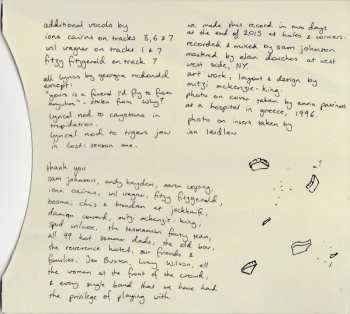 additional vocals by
iona cairns on tracks 3, 6 & 7
wil wagner on tracks 1 & 7
fitzy fitzgerald on track 7
all lyrics by georgia
except:
"yours is a friend i'd fly to from
anywhere" - stolen from 'why?'
lyrical nod to cayetana in
trepidation.
lyrical nod to tigers jaw
in lost: season one.
we made this record in nine days
at the end of 2015 at holes & corners.
recorded & mixed by sam johnson
mastered by alan douches at west
west side, NY
art work, layout & design by
mitzi mckenzie-king.
photo on cover taken by anna
at a hospital in greece, 1996.
photo on insert taken by
ian laidlaw
thank you
sam johnson, andy hayden,
iona cairns, wil wagner, fitzy fitzgerald,
chris & brendan at jackknife,
damian mitzi mckenzie-king,
spud the tasmanian footy team,
all 99 hot summer dads, the old bar,
the reverence hotel, our friends &
families, Jen Buxton, Lucy Wilson, all
the women at the front of the crowd,
& every single band that we have had
the privilege of playing with.